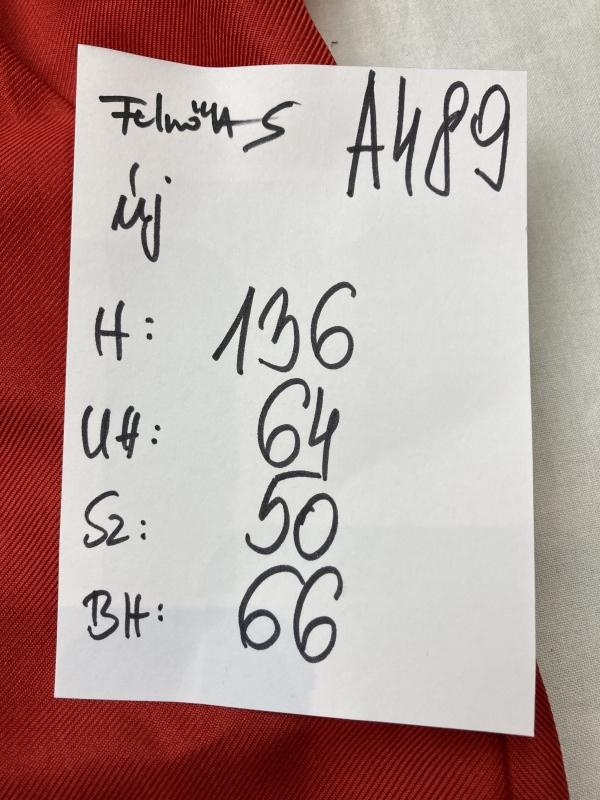 Felnőtt S A489
új
H: 136
UH: 64
Sz: 50
BH: 66